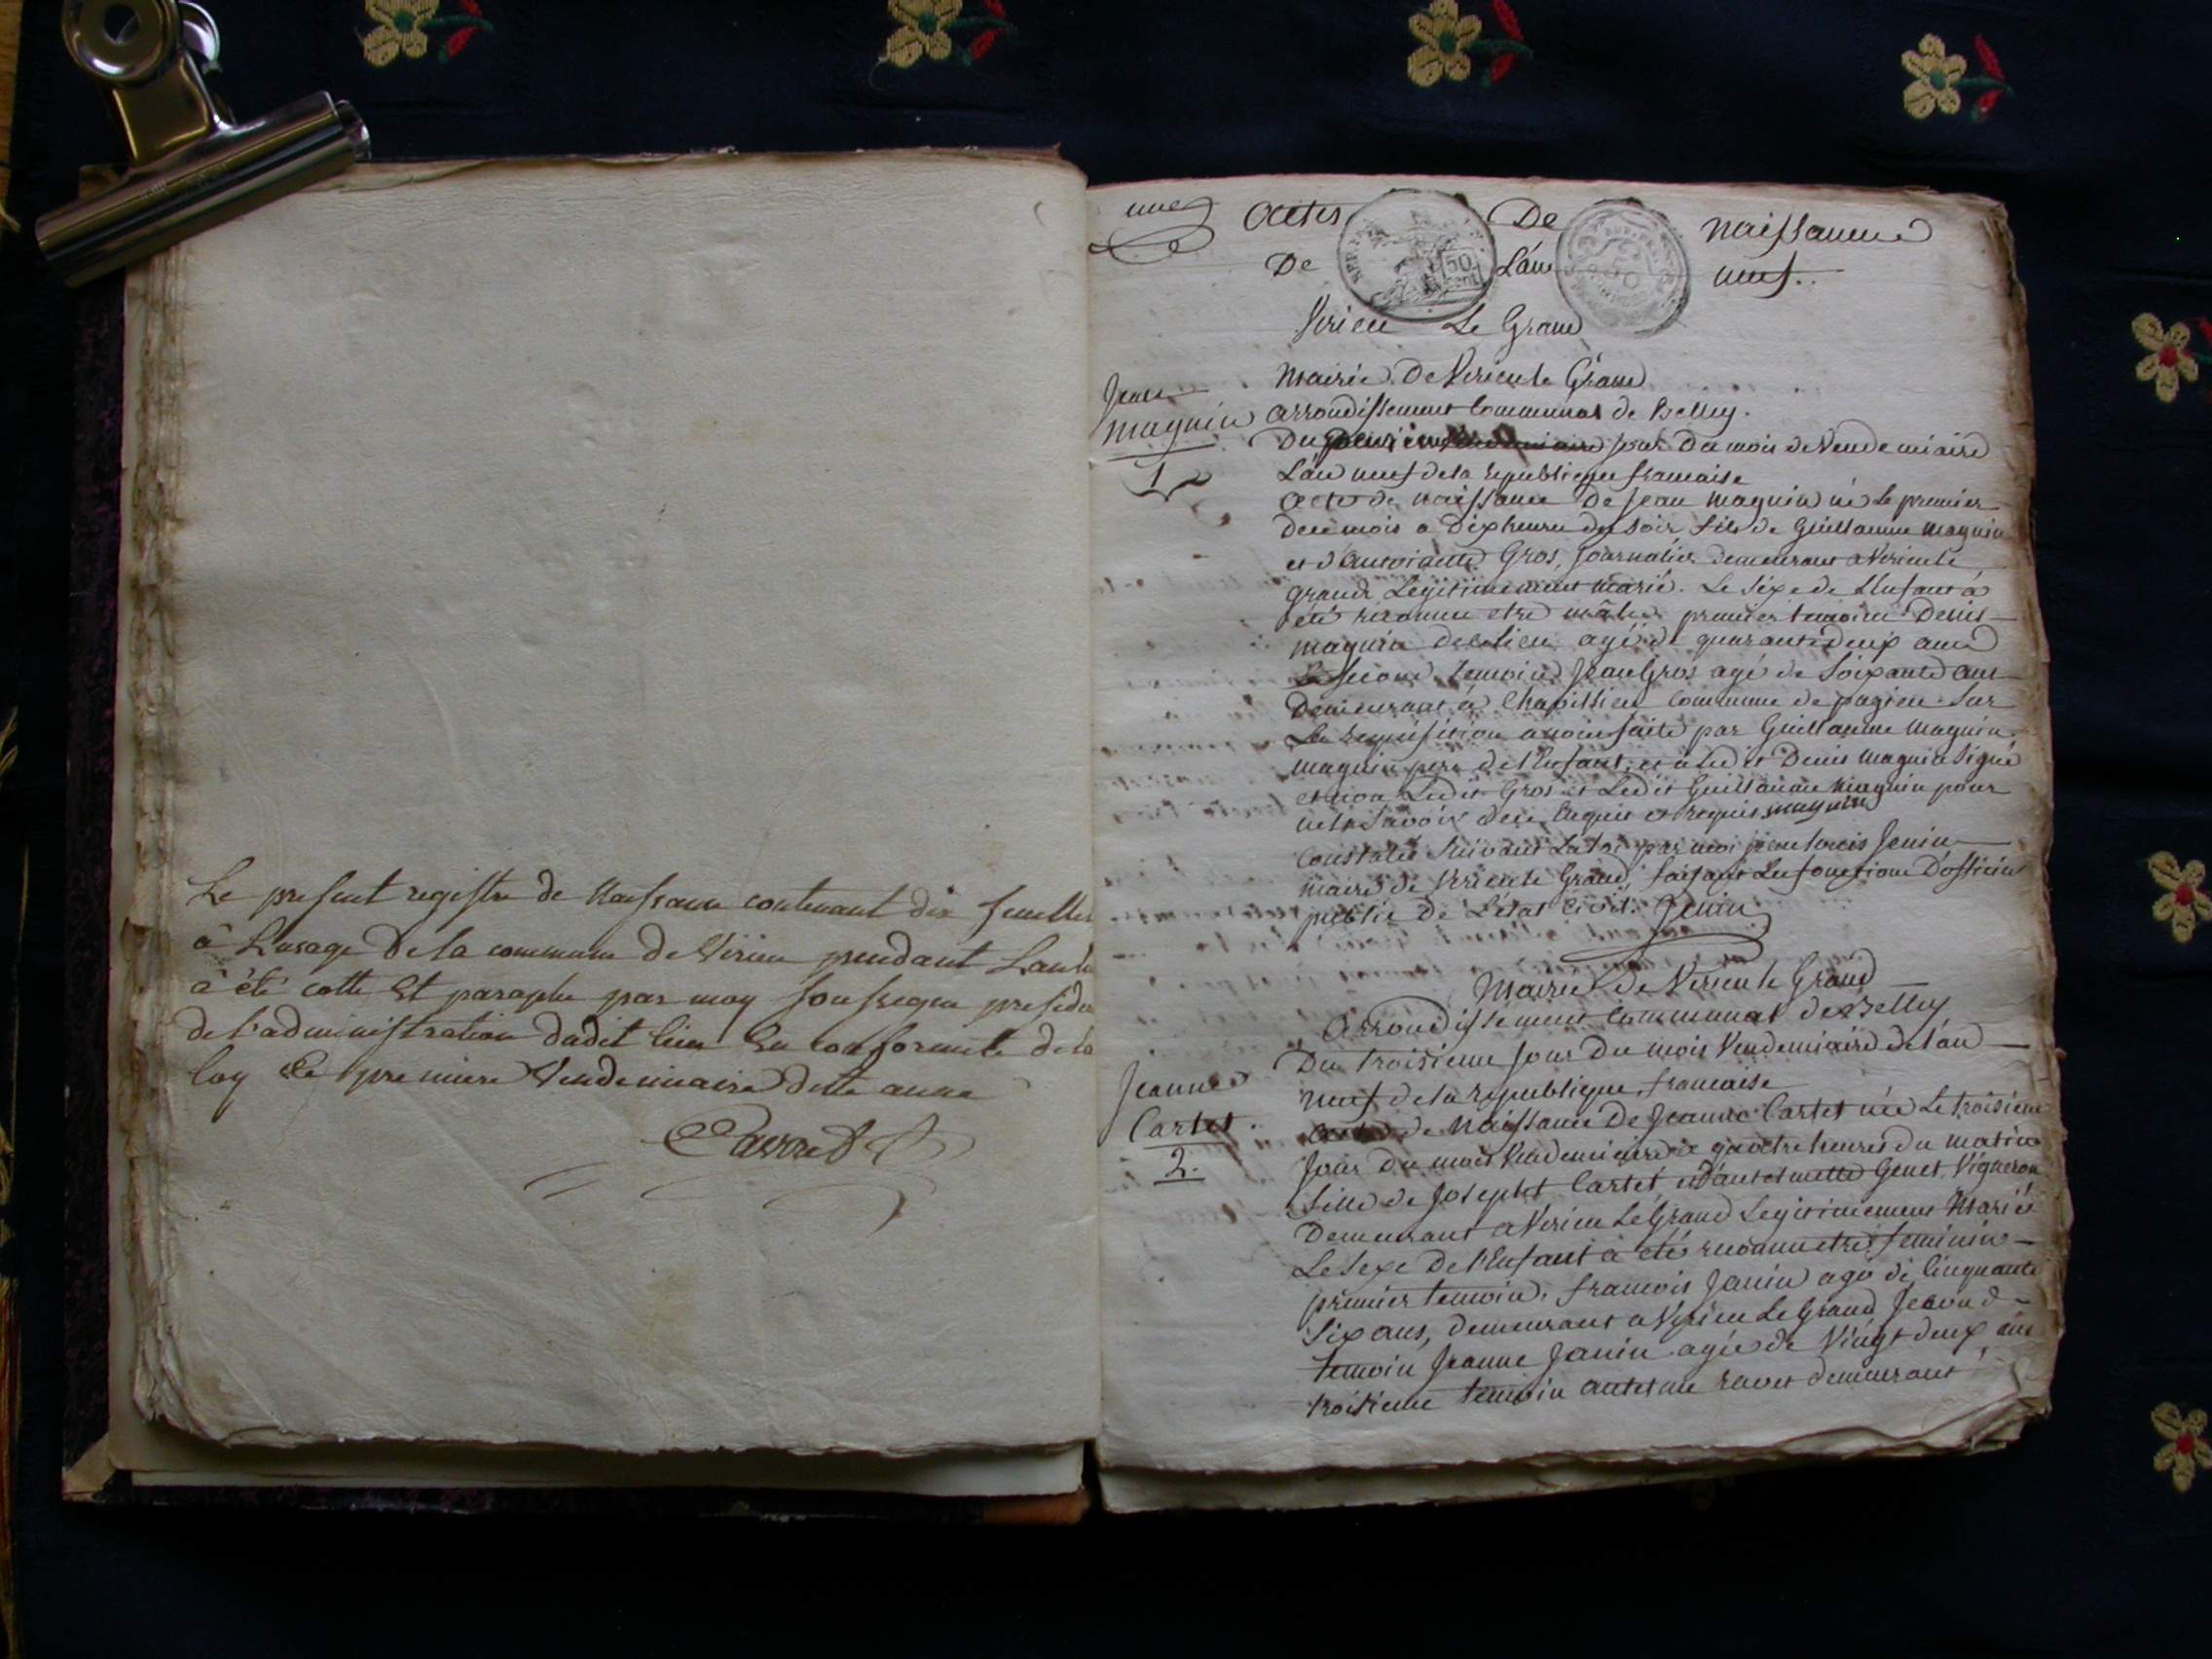 Le present registre de Naissance contenant dix feuillet
à L'usage de la commune de Virieu pendant L'an
à été cotté Et paraphé par moy soussigné preside
de l'administration dudit lieu En conformité de la
loy le premier Vendemiaire dite année
une
actes De naissance
De L'an neuf.
Virieu Le Grand
Mairie De Virieu le Grand
Jean
arrondissement Communal de Belley.
Magnin
Du jour Du mois de Vendemiaire
1
L'an neuf de la republique francaise
acte de naissance De jean magnin né Le premier
de ce mois a Dix heures du soir, fils de Guillaume magnin
et d'antoinette Gros, journalier demeurant a Virieu le
grand Legitimement marié. Le sexe de L'Enfant à
été reconnu etre mâle. premier temoin Denis
magnin de ce lieu agé de quarante deux ans
Le second temoin Jean Gros agé de Soixante ans
Demeurant à Chapissieu Commune de pugieu. Sur
La requisition a moi faite par Guillaume magnin
magnin pere de l'Enfant, et a Ledit Denis magnin signé
et non Ledit Gros et Ledit Guillaume magnin pour
ne le savoir de ce Enquis et requis magnin
Constaté Suivant La loi par moi jean louis Jenin
maire de Virieu le Grand, faisant Les fonctions D'officier
public de L'état Civil. Jenin
Mairie de Virieu le Grand
Arrondissement Communal de Belley
Du troisieme jour Du mois Vendemiaire de l'an
Jeanne
neuf de la republique francaise
Cartet.
acte de Naissance De Jeanne Cartet née Le troisieme
2.
Jour Du mois Vendemiaire a quatre heures du matin
fille de Joseph Cartet et d'antelmette Genet, Vigneron
Demeurant a Virieu Le Grand Legitimement Marié
Le sexe De l'Enfant à été reconnu etre feminin
premier temoin. francois Janin agé de Cinquante
six ans, demeurant a Virieu Le Grand second
temoin Jeanne Janin agée de Vingt deux ans
troisieme temoin antelme ravet demeurant